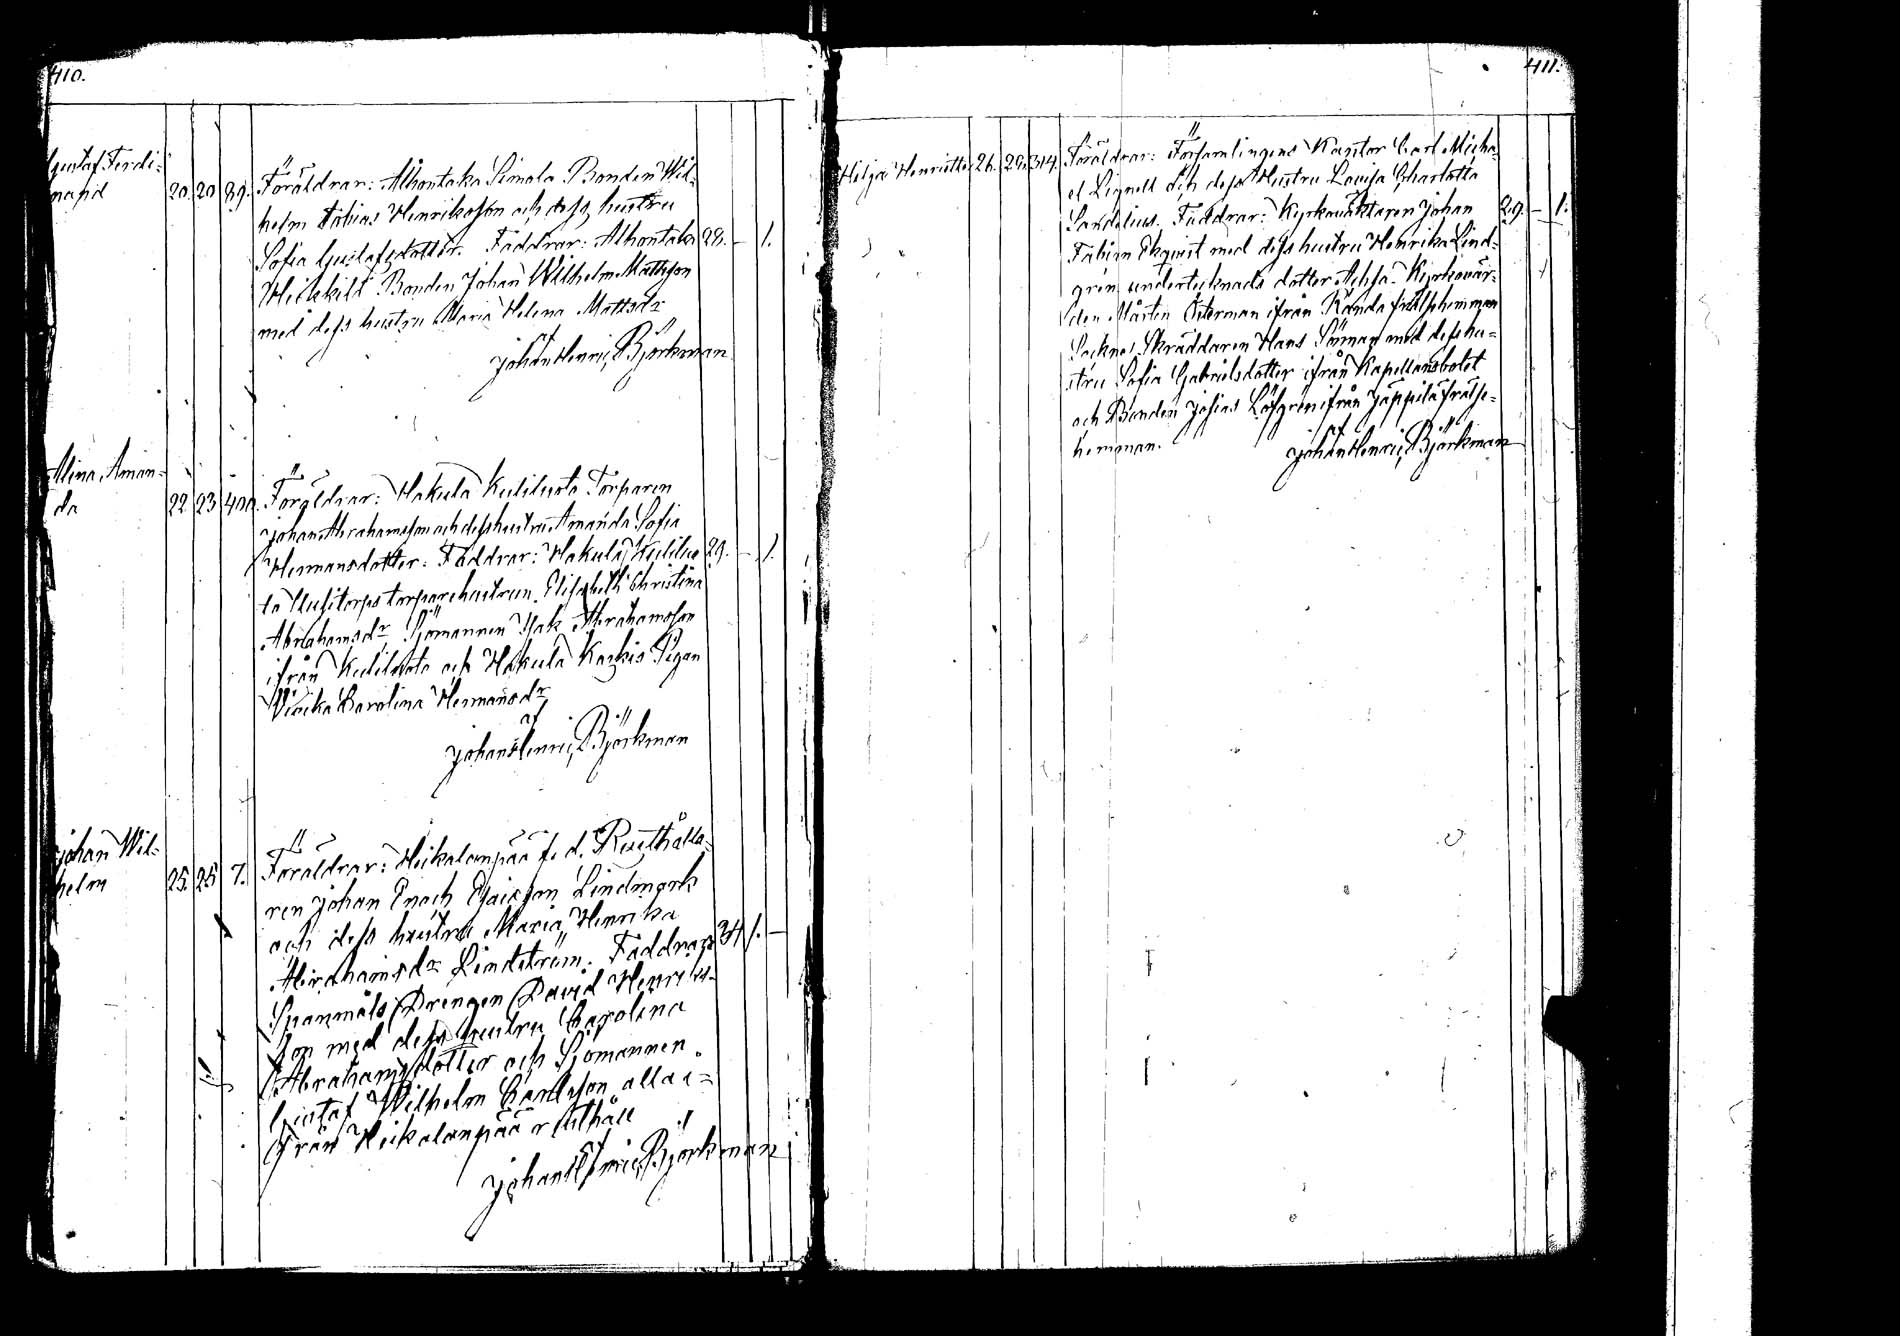 410.
Gustaf Ferdi-
nand 20. 20 89. Föräldrar: Alhontaka Simola Bonden Wil-
helm Tobias Henriksson och dess hustru
Sofia Gustafsdotter. Faddrar: Alhontaka 28. — 1.
Heikkilä Bonden Johan Wilhelm Mattsson
med dess hustru Maria Helena Mattsdr
af
Johan Henric Björkman
Alina Aman-
da 22 23 400. Föräldrar: Hakula Kuliluoto Torparen
Johan Abrahamsson och dess hustru Amanda Sofia
Hermansdotter. Faddrar: Hakula Kuliluo 29. — 1.
to torparehustrun Elisabeth Christina
Abrahamsdr Sjömannen Isak Abrahamsson
ifrån Kuliluoto och Hakula Karkis Pigan
Carolina Hermansdr
af
Johan Henric Björkman
Johan Wil-
helm 25. 25 7. Föräldrar: Heikolanpää f. d. Rusthålla-
ren Johan Enoch Esaiasson Lindmark
och dess hustru Maria Henrika
Abrahamsdr Lindström. Faddrar: 34 1. —
Spanmåls Drengen David Henriks-
son med dess hustru Carolina
Abrahamsdotter och Sjömannen
Gustaf Wilhelm Carlsson alla i-
från Heikolanpää rusthåll
af
Johan Henric Björkman
411.
Helga Henriette 26. 29. 314. Föräldrar: Församlingens Kantor Carl Micha-
el Lignell och dess Hustru Lovisa Charlotta
Sandelius. Faddrar: Kyrkovaktaren Johan 29. — 1.
Fabian Ekqvist med dess hustru Henrika Lind-
gren undertecknads dotter Achsa Kyrkovär-
den Mårten Österman ifrån Randa frälsehemman
Sockne Skräddaren Hans Sörman med dess hu-
stru Sofia Gabrielsdotter ifrån Kapellansbolet
och Bonden Josias Löfgren ifrån Jäppilä frälse-
hemman.
af
Johan Henric Björkman